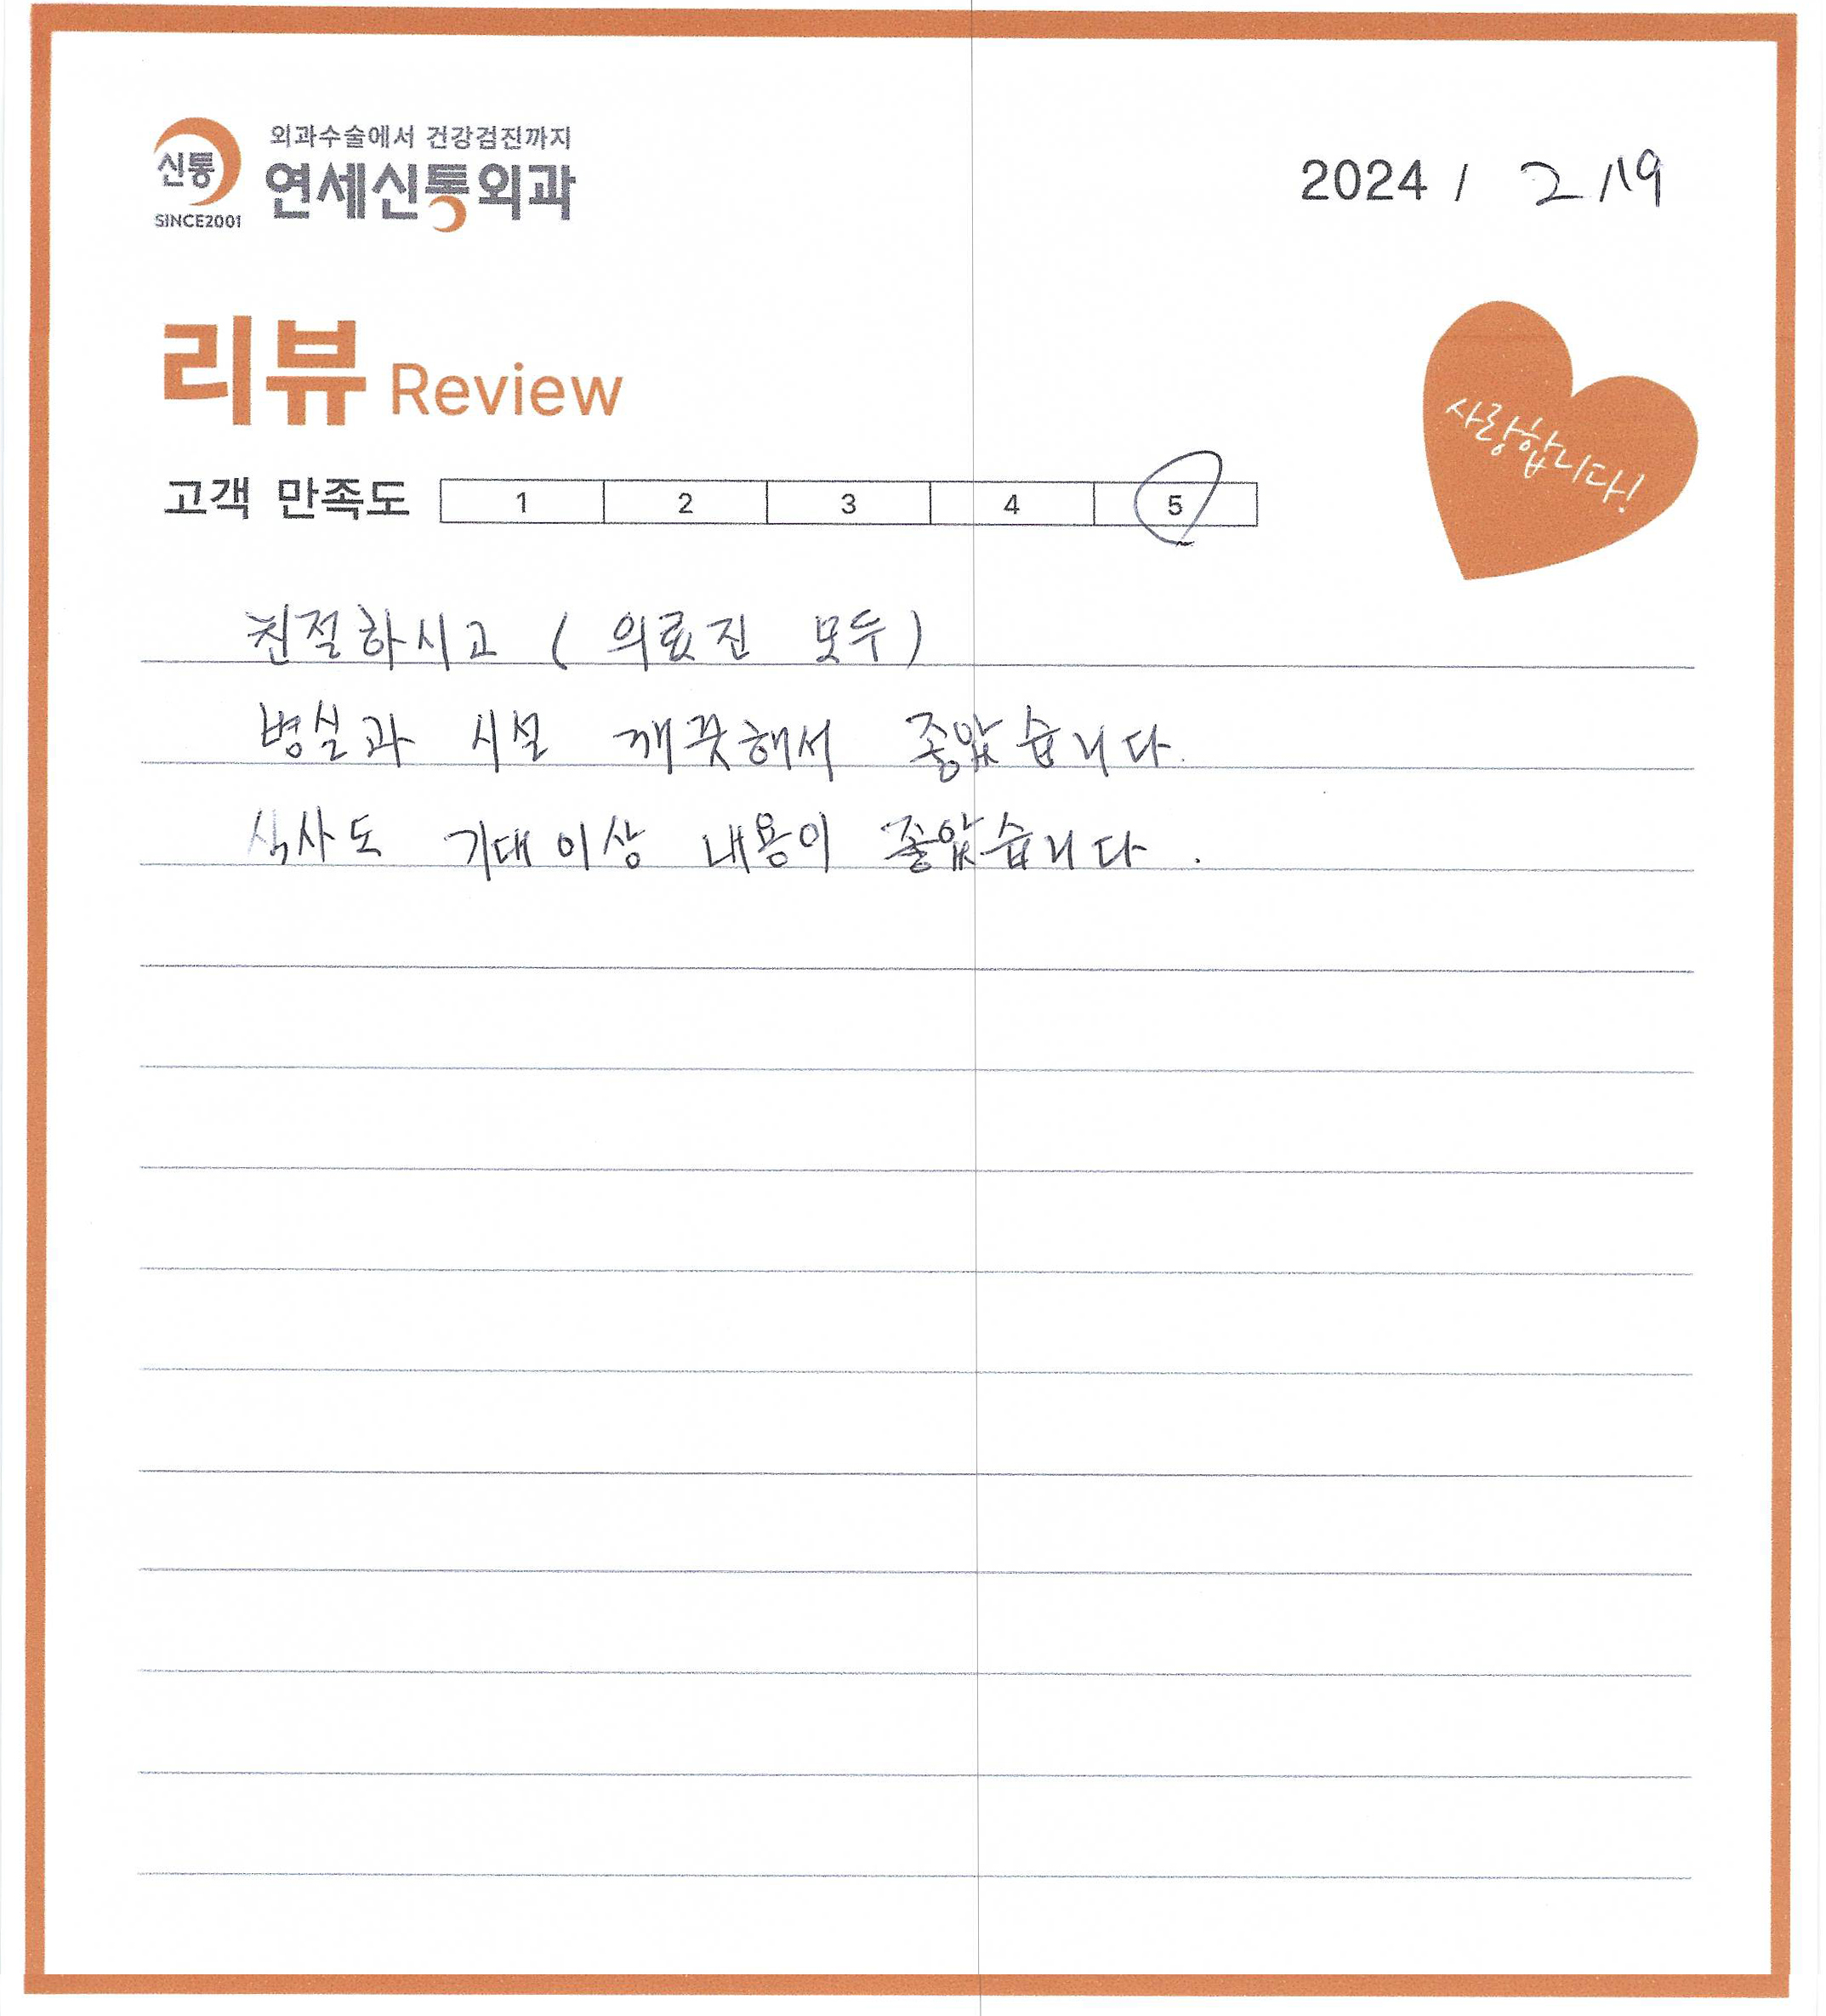 신통
SINCE2001
외과수술에서 건강검진까지
연세신통외과
2024 / 2 /19
리뷰 Review
사랑합니다!
고객 만족도 1 2 3 4 5
친절하시고 ( 의료진 모두)
병실과 시설 깨끗해서 좋았습니다.
식사도 기대이상 내용이 좋았습니다.